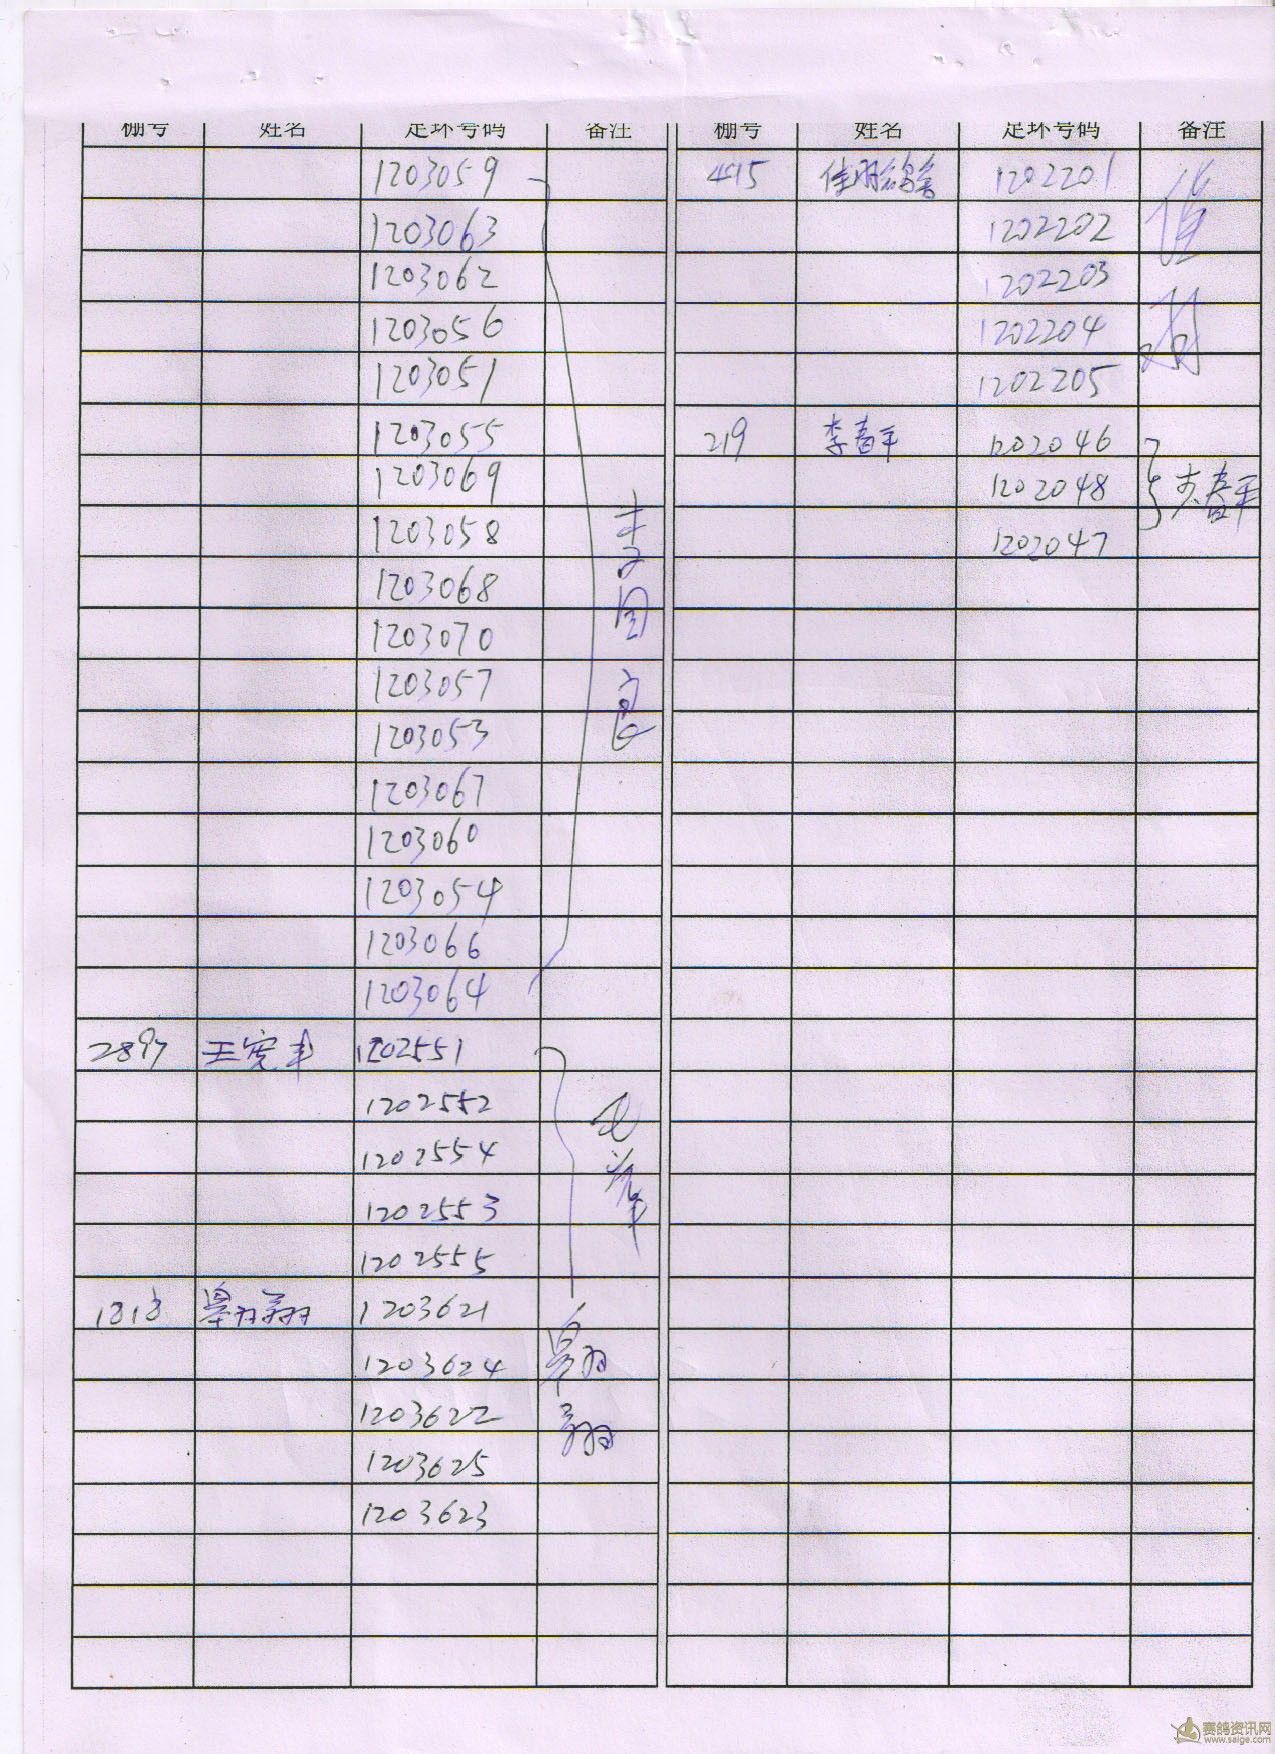 棚号 姓名 足环号码 备注
1203059
1203063
1203062
1203056
1203051
1203055
1203069
1203058
1203068
1203070
1203057
1203053
1203067
1203060
1203054
1203066
1203064
2897 王宪丰 1202551
1202552
1202554
1202553
1202555
1818 翱翔 1203621
1203624
1203622
1203625
1203623
李国
翱翔
棚号 姓名 足环号码 备注
495 佳翔鸽舍 1202201
1202202
1202203
1202204
1202205
219 李春平 1202046
1202048
1202047
李春平
赛鸽资讯网
www.saige.com